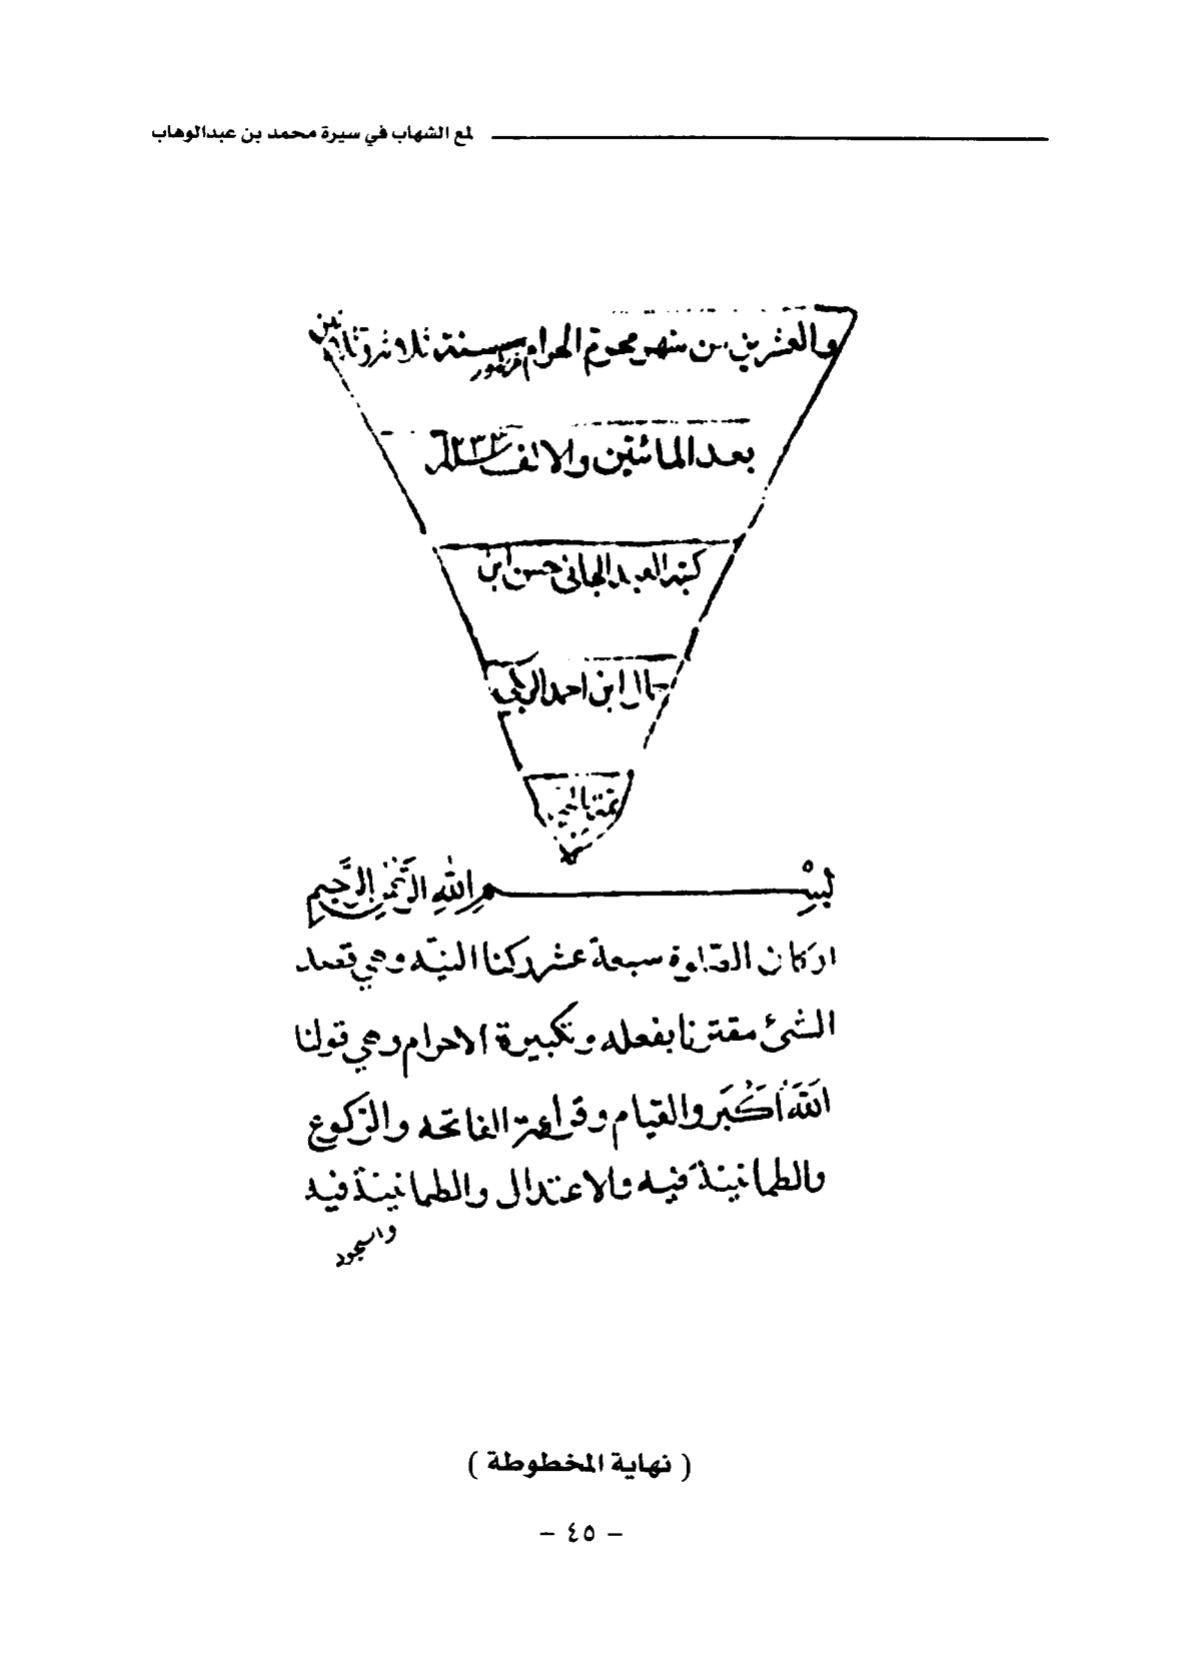 لمع الشهاب في سيرة محمد بن عبدالوهاب
والعشرين من شهر محرم الحرام سنة ثلاثة وثلاثين
بعد المائتين والالف ١٢٣٣
كتبه العبد الجاني حسن ابن
جمال ابن احمد الريكي
بسم الله الرحمن الرحيم
اركان الصلوة سبعة عشر ركنا النيّه وهي قصد
الشئ مقترنا بفعله وتكبيرة الاحرام وهي قولنا
اللَه أَكْبَر والقيام وقراءة الفاتحه والركوع
والطمانينة فيه والاعتدال والطمانينة فيه
والسجود
( نهاية المخطوطة )
- ٤٥ -